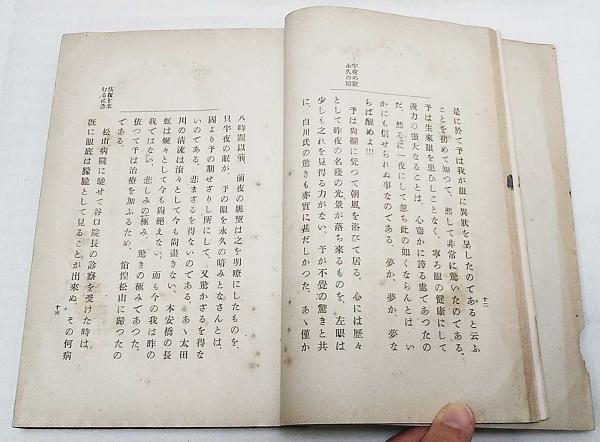 半夜の眠
永久の暗
是に於て予は我が眼に異狀を呈したのであると云ふ
ことを初めて知つて、然して非常に驚いたのである。
予は生來眼を患ひしことなく、寧ろ眼の健康にして
視力の强大なることは、心竊かに誇る處であつたの
だ。然るに一夜にして忽ち此の如くならんとは、い
かにも信せられぬ事なのである。夢か、夢か、夢な
らば醒めよ!!!
予は尙欄に凭つて朝風を浴びて居る。心には歷々
として昨夜の名殘の光景が落ち來るものを、左眼は
少しも之れを見得る力がない。予が不覺の驚きと共
に、白川氏の驚きも亦實に甚だしかつた。あゝ僅か
十二
八時間以前、前夜の眺望は之を明瞭にしたものを、
只半夜の眠が、予の眼を永久の暗みとなさんとは、
固より予の期せざりし所にして、又驚かざるを得な
いのである。悲まざるを得ないのである。あゝ太田
川の淸流は滾々として今も尙盡きない、本安橋の長
虹は蜿々として今も尙絕えない、而も今の我は昨の
我ではない、悲しみの極み、驚きの極みであつた。
依つて予は治療を加ふるため、愴惶松山に歸つたの
である。
恢復を求
むるに急
松山病院に馳せて谷口院長の診察を受けた時は、
旣に眼底は朦朧として見ることが出來ぬ。その何病
十三